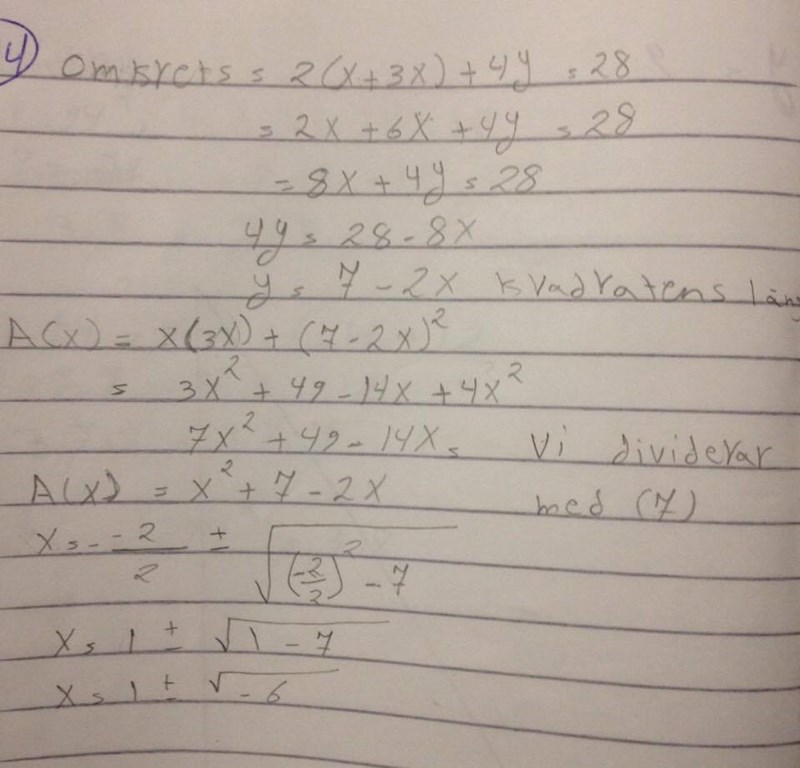 4) Omkrets = 2(x+3x) + 4y = 28
= 2x + 6x + 4y = 28
= 8x + 4y = 28
4y = 28 - 8x
y = 7 - 2x kvadratens län
A(x) = x(3x) + (7-2x)²
= 3x² + 49 - 14x + 4x²
7x² + 49 - 14x = Vi dividerar
A(x) = x² + 7 - 2x med (7)
x = - -2/2 ± √((-2/2)² - 7)
x = 1 ± √1 - 7
x = 1 ± √-6